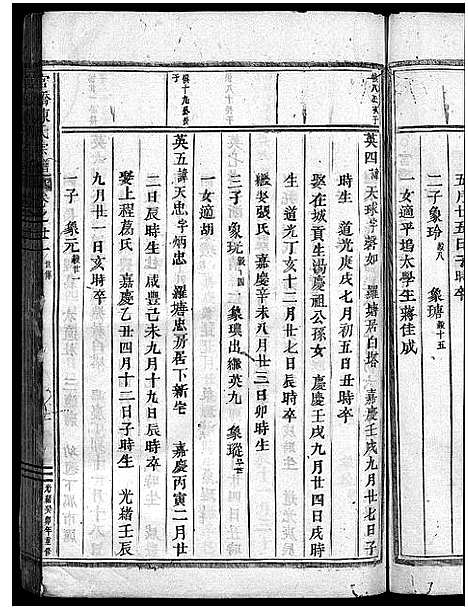 五月廿五日子時卒
二子象玲毅八 象瑭毅十五
一女適平塢太學生蔣佳成
英四諱天球字磬如 羅塘居白塔 嘉慶壬戌九月廿七日子
時生 道光庚戌七月初五日丑時卒
娶在城貢生湯慶祖公孫女 嘉慶壬戌九月廿四日戌時
生 道光丁亥十二月廿七日辰時卒
繼娶張氏 嘉慶辛未八月廿三日卯時生
三子象玩 象璵出繼英九 象瑽
一女適胡
英五諱天忠字炳忠 羅塘忠房居下新宅 嘉慶丙寅二月廿
二日辰時生 咸豐己未九月十九日辰時卒
娶上程葛氏 嘉慶乙丑四月十二日子時生 光緒壬辰
九月廿一日亥時卒
一子象元毅廿一
陳氏宗譜
卷之廿一
光緒癸卯年重修